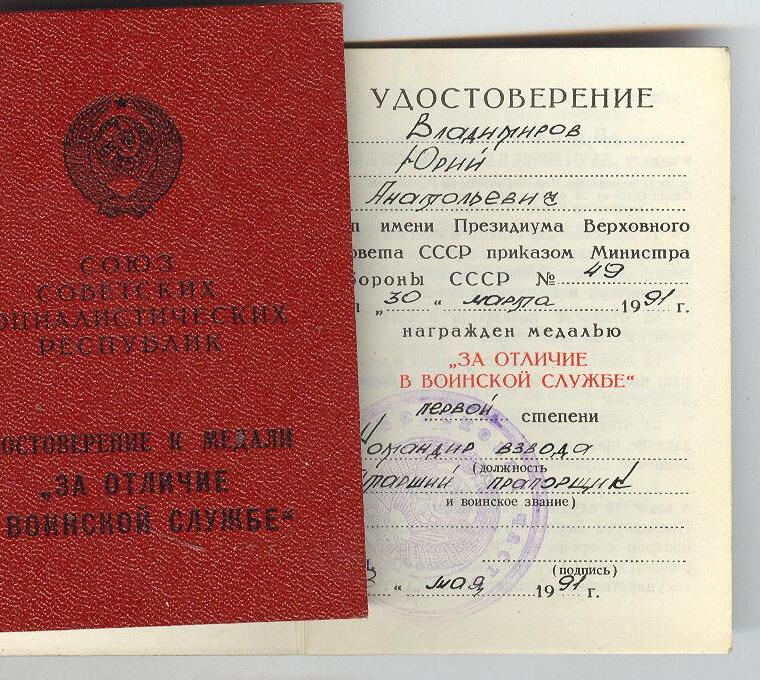 СОЮЗ
СОВЕТСКИХ
ОЦИАЛИСТИЧЕСКИХ
РЕСПУБЛИК
ОСТОВЕРЕНИЕ К МЕДАЛИ
„ЗА ОТЛИЧИЕ
ВОИНСКОЙ СЛУЖБЕ“
УДОСТОВЕРЕНИЕ
Владимиров
Юрий
Анатольевич
п имени Президиума Верховного
овета СССР приказом Министра
бороны СССР № 49
„30“ марта 1991 г.
награжден медалью
„ЗА ОТЛИЧИЕ
В ВОИНСКОЙ СЛУЖБЕ“
первой степени
Командир взвода
(должность
старший прапорщик
и воинское звание)
(подпись)
“ мая 1991 г.